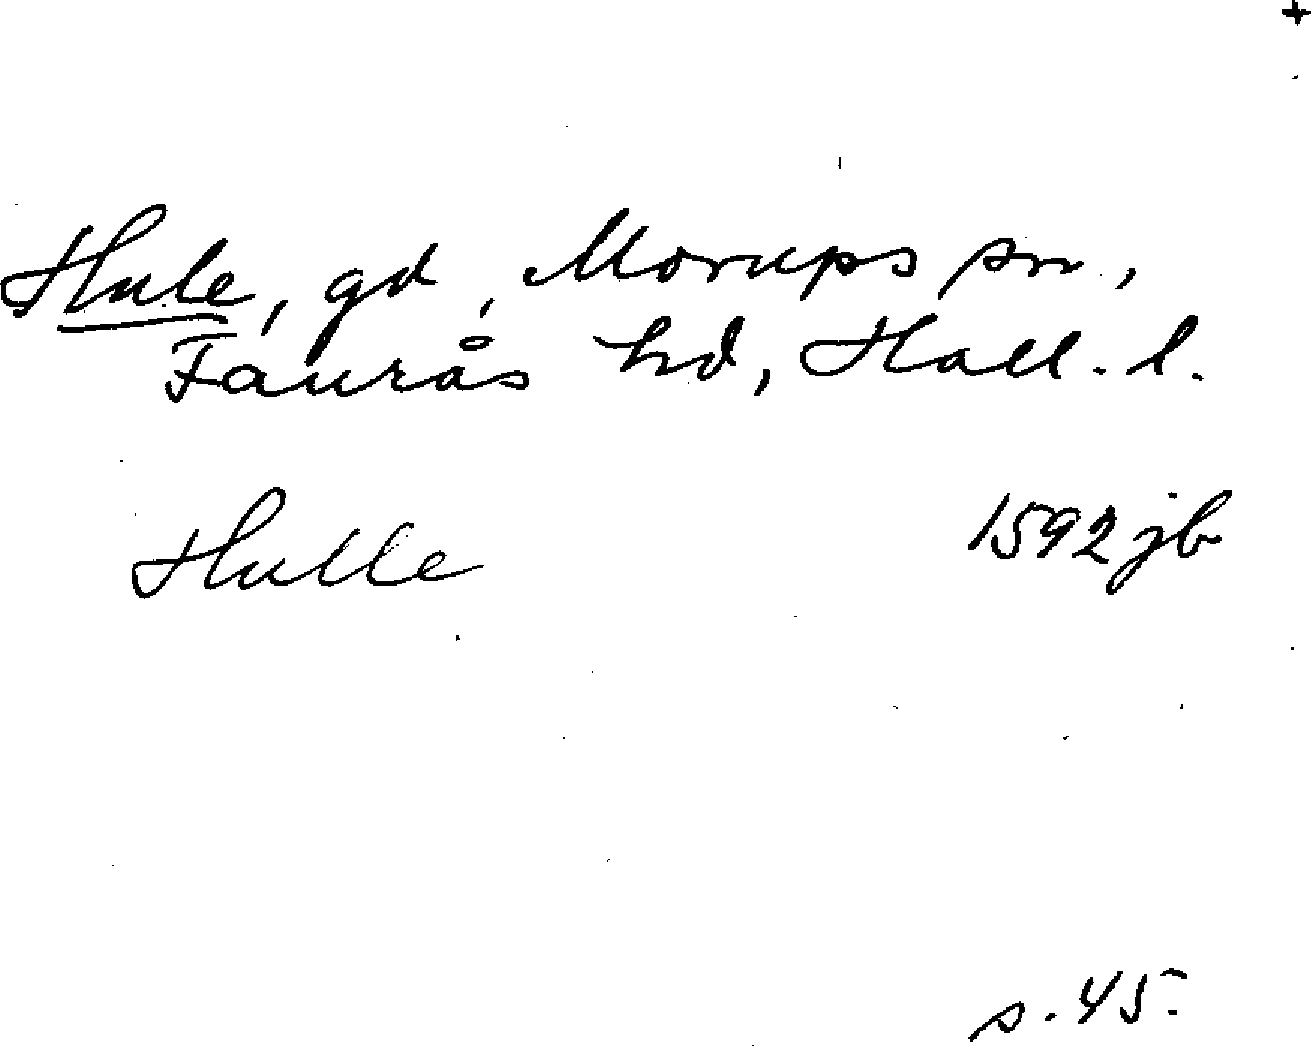 +
Hule, gd, Morups sn,
Faurås hd, Hall. l.
Hulle 1592 jb
s. 45.